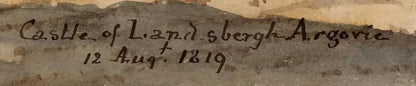 Castle of Landsbergh Argovie
12 Augt. 1819